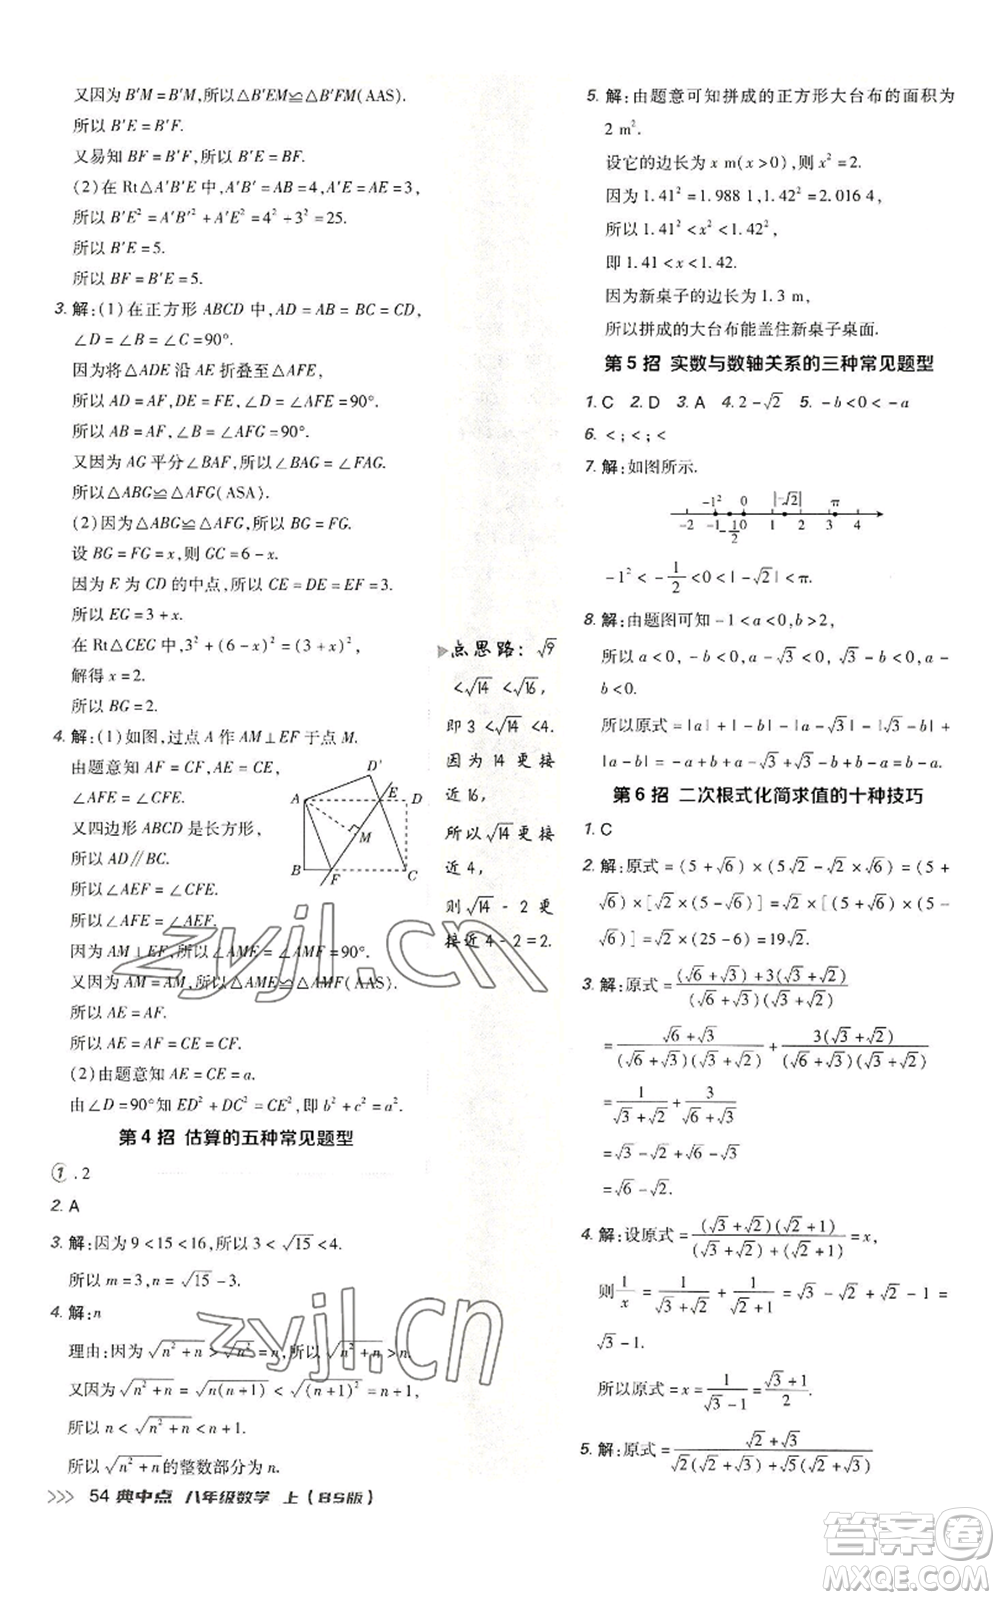 又因为 B′M = B′M,所以△B′EM≌△B′FM(AAS).
所以 B′E = B′F.
又易知 BF = B′F,所以 B′E = BF.
(2)在 Rt△A′B′E 中,A′B′ = AB = 4,A′E = AE = 3,
所以 B′E² = A′B′² + A′E² = 4² + 3² = 25.
所以 B′E = 5.
所以 BF = B′E = 5.
3. 解:(1)在正方形 ABCD 中,AD = AB = BC = CD,
∠D = ∠B = ∠C = 90°.
因为将△ADE 沿 AE 折叠至△AFE,
所以 AD = AF,∠D = ∠AFE = 90°.
所以 AB = AF,∠AFG = 90°.
又因为 AG 平分∠BAF,所以∠BAG = ∠FAG.
所以△ABG≌△AFG(ASA).
(2)因为△ABG≌△AFG,所以 BG = FG.
设 BG = FG = x,则 GC = 6 - x.
因为 E 为 CD 的中点,所以 CE = DE = EF = 3.
所以 EG = 3 + x.
在 Rt△CEG 中,3² + (6 - x)² = (3 + x)²,
解得 x = 2.
所以 BG = 2.
4. 解:(1)如图,过点 A 作 AM⊥EF 于点 M.
由题意知 AF = CF,AE = CE,
∠AFE = ∠CFE.
又四边形 ABCD 是长方形,
所以 AD∥BC.
所以∠AEF = ∠CFE.
所以∠AFE = ∠AEF.
因为 AM⊥EF,所以∠AMF = ∠AME = 90°.
又因为 AM = AM,所以△AMF≌△AME(AAS).
所以 AE = AF.
所以 AE = AF = CE = CF.
(2)由题意知 AE = CE = a.
由∠D = 90°知 ED² + DC² = CE²,即 b² + c² = a².
D′
A
E
D
M
B
F
C
第 4 招 估算的五种常见题型
1. 2
2. A
3. 解:因为 9 < 15 < 16,所以 3 < √15 < 4.
所以 m = 3,n = √15 - 3.
4. 解:n
理由:因为√(n² + n) > √(n²) = n,所以√(n² + n) > n.
又因为√(n² + n) = √(n(n + 1)) < √((n + 1)²) = n + 1,
所以 n < √(n² + n) < n + 1.
所以√(n² + n)的整数部分为 n.
点思路: √9
< √14 < √16,
即 3 < √14 < 4.
因为 14 更接
近 16,
所以 √14 更接
近 4,
则 √14 - 2 更
接近 4 - 2 = 2.
5. 解:由题意可知拼成的正方形大台布的面积为
2 m².
设它的边长为 x m(x > 0),则 x² = 2.
因为 1. 41² = 1. 988 1,1. 42² = 2. 016 4,
所以 1. 41² < x² < 1. 42².
即 1. 41 < x < 1. 42.
因为新桌子的边长为 1. 3 m,
所以拼成的大台布能盖住新桌子桌面.
第 5 招 实数与数轴关系的三种常见题型
1. C 2. D 3. A 4. 2 - √2 5. -b < 0 < -a
6. < ; < ; <
7. 解:如图所示.
-1² 0 |-√2| π
-2 -1 -1/2 0 1 2 3 4
-1² < -1/2 < 0 < |-√2| < π
8. 解:由题图可知 -1 < a < 0,b > 2,
所以 a < 0, -b < 0,a - √3 < 0, √3 - b < 0,a - b
< 0.
所以原式 = |a| + |-b| - |a - √3| - |√3 - b| +
|a - b| = -a + b + a - √3 + √3 - b - a + b = b - a.
第 6 招 二次根式化简求值的十种技巧
1. C
2. 解:原式 = (5 + √6) × (5√2 - √2 × √6) = (5 +
√6) × [√2 × (5 - √6)] = √2 × [(5 + √6) × (5 -
√6)] = √2 × (25 - 6) = 19√2.
3. 解:原式 = ((√6 + √3) + 3(√3 + √2))/((√6 + √3)(√3 + √2))
= (√6 + √3)/((√6 + √3)(√3 + √2)) + 3(√3 + √2)/((√6 + √3)(√3 + √2))
= 1/(√3 + √2) + 3/(√6 + √3)
= √3 - √2 + √6 - √3
= √6 - √2.
4. 解:设原式 = ((√3 + √2)(√2 + 1))/((√3 + √2) + (√2 + 1)) = x,
则 1/x = 1/(√2 + 1) + 1/(√3 + √2) = √2 - 1 + √3 - √2 =
√3 - 1.
所以原式 = x = 1/(√3 - 1) = (√3 + 1)/2.
5. 解:原式 = (√2 + √3)/(√2(√2 + √3) + √5(√2 + √3))
>>> 54 典中点 八年级数学 上(BS版)
zyjl.cn
zyjl.cn
答案卷
MXQE.COM